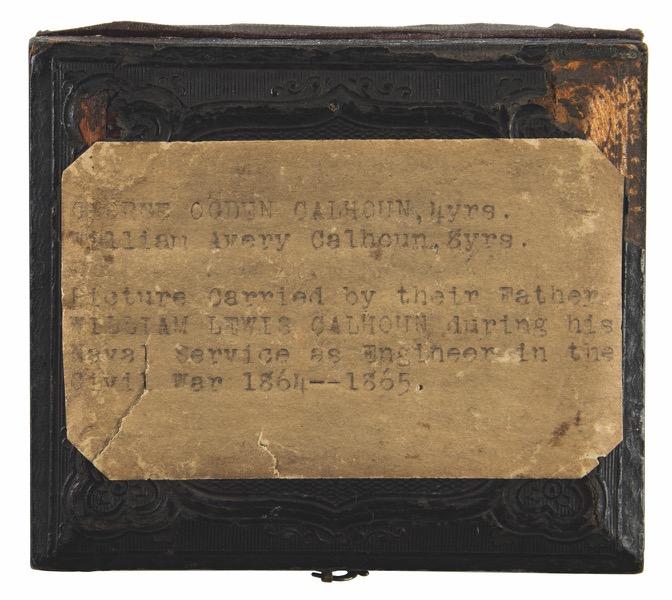 GEORGE OGDEN CALHOUN, 4yrs.
William Avery Calhoun, 8yrs.
Picture Carried by their Father
WILLIAM LEWIS CALHOUN during his
Naval Service as Engineer in the
Civil War 1864--1865.